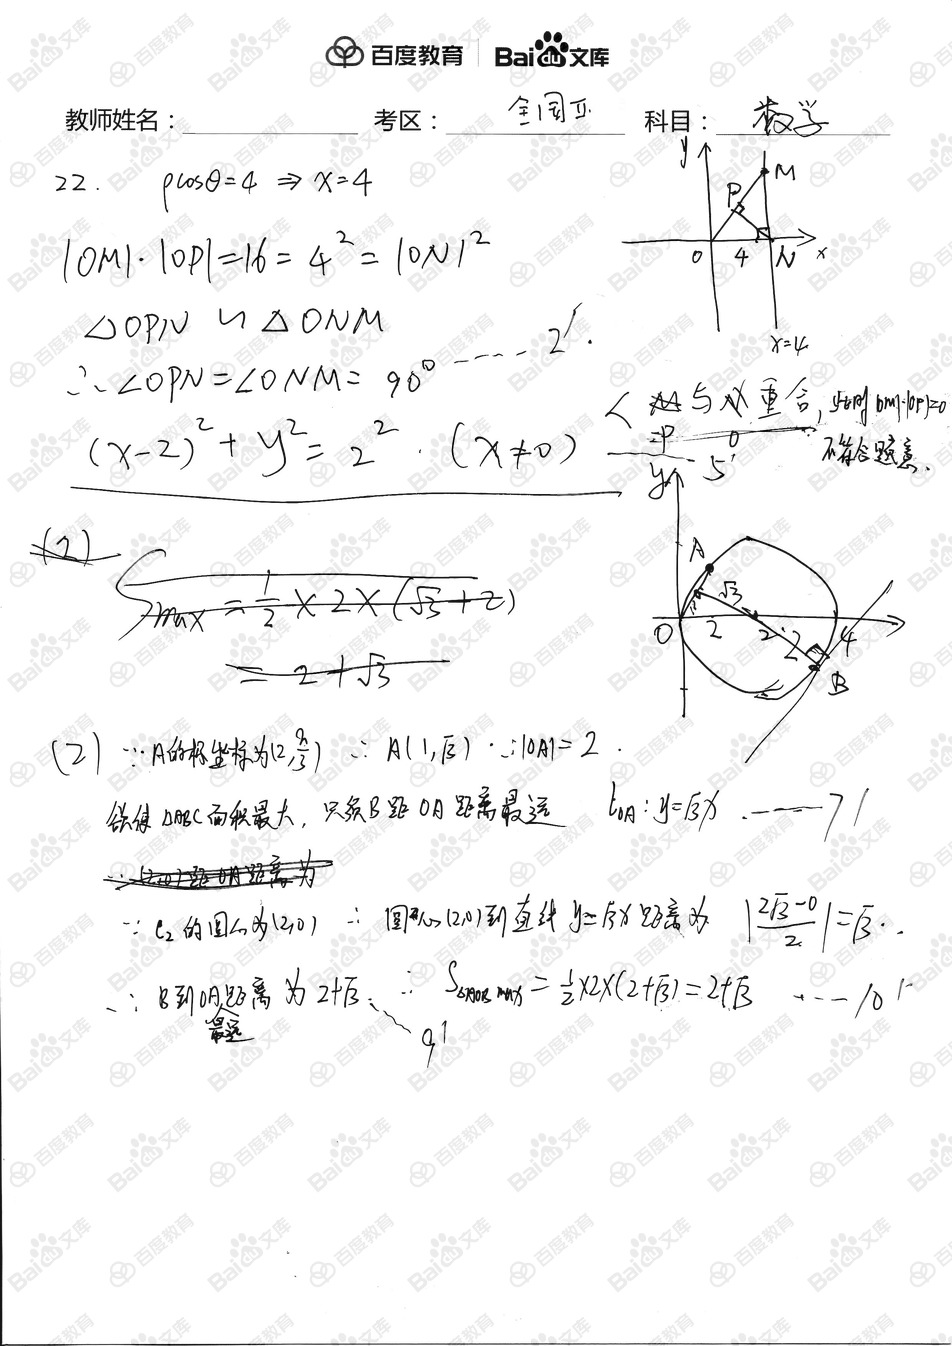 百度教育 Bai du 文库
教师姓名： 考区： 全国Ⅱ 科目： 数学
22. ρcosθ=4 ⇒ x=4
|OM|·|OP|=16=4²=|ON|²
△OPN ∽ △ONM
∴∠OPN=∠ONM=90° ---- 2'.
(x-2)²+y²=2². (x≠0)
y
M
P
O 4 N x
x=4
与 重合, 此时|OM|·|OP|=0
P O
不符合题意.
5'
(2)
Smax = 1/2 × 2 × (√3+2)
= 2+√3
y
A
√3
O 2 2 2 4
B
(2) ∵ A的极坐标为(2, π/3) ∴ A(1,√3) ∴|OA|=2.
△ABC面积最大, 只须B距OA距离最远 lOA: y=√3x ---- 7'
(2,0)距OA距离为
∵ C₂的圆心为(2,0) ∴ 圆心(2,0)到直线y=√3x距离为 |(2√3-0)/2|=√3.
∴ B到OA最远距离为2+√3. ∴ S△AOB max = 1/2×2×(2+√3)=2+√3 ---- 10'
9'